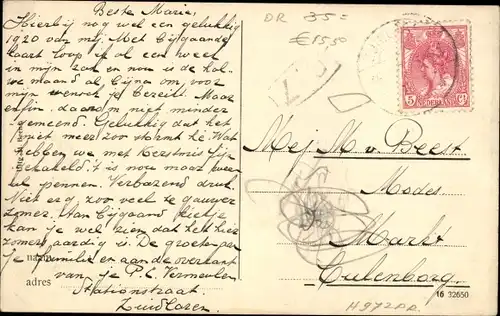 Beste Marie,
Hierbij nog wel een gelukkig
1920 van mij. Met bijgaande
kaart loop ik al een week
in mijn zak en nou is de hal-
ve maand al bijna om voor
mijn wensch je bereikt. Maar
enfin. daarom niet minder
gemeend. Gelukkig dat het
niet meer zoo stormt hè. Wat
hebben we met Kerstmis fijn
geschakeld? t is nou maar weer
pennen. Verbazend druk.
Niet erg zoo veel te gauwer
zomer. Aan bijgaand kiekje
kan je wel zien dat het hier
zomers aardig is. De groeten per
je familie en aan de overkant
van je P.C. Vermeulen
Stationstraat
Zuidlaren.
naam
adres
DR 35=
€15,50
NEDERLAND
5 CT
Mej M. v. Beest
Modes
Markt
Culenborg.
H972DR.
16 32650